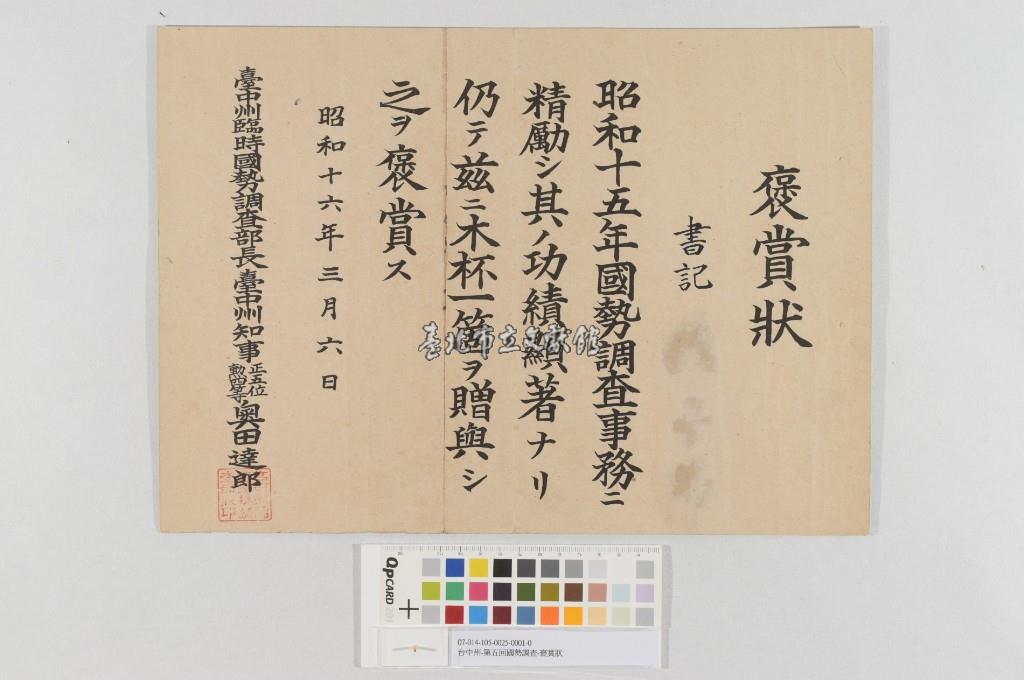 褒賞狀
書記
昭和十五年國勢調査事務ニ
精勵シ其ノ功績顯著ナリ
仍テ茲ニ木杯一箇ヲ贈與シ
之ヲ褒賞ス
昭和十六年三月六日
臺中州臨時國勢調査部長臺中州知事正五位勲四等奧田達郎
臺北市立文獻館
QPCARD 201
07-014-105-0025-0001-0
台中州-第五回國勢調查-褒賞狀